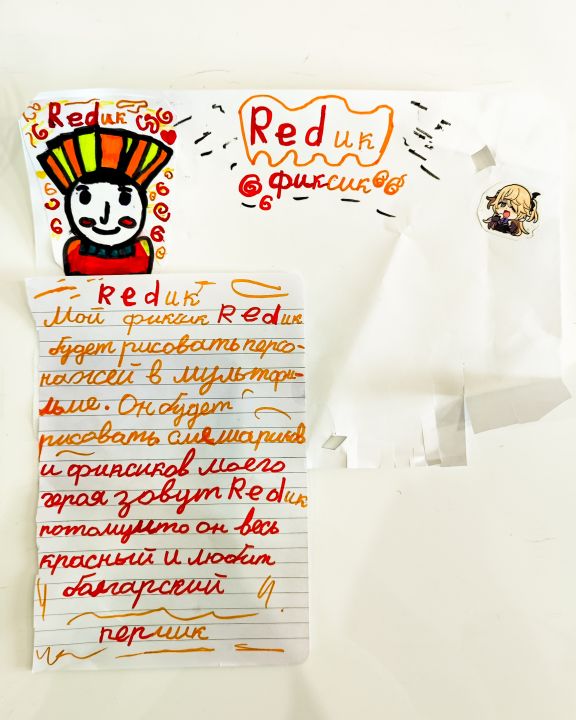 Redик
Redик
фиксик
Redик
Мой фиксик Redик
будет рисовать персо-
нажей в мультфи-
льме. Он будет
рисовать смешариков
и фиксиков моего
героя зовут Redик
потомушто он весь
красный и любит
балгарский
перчик